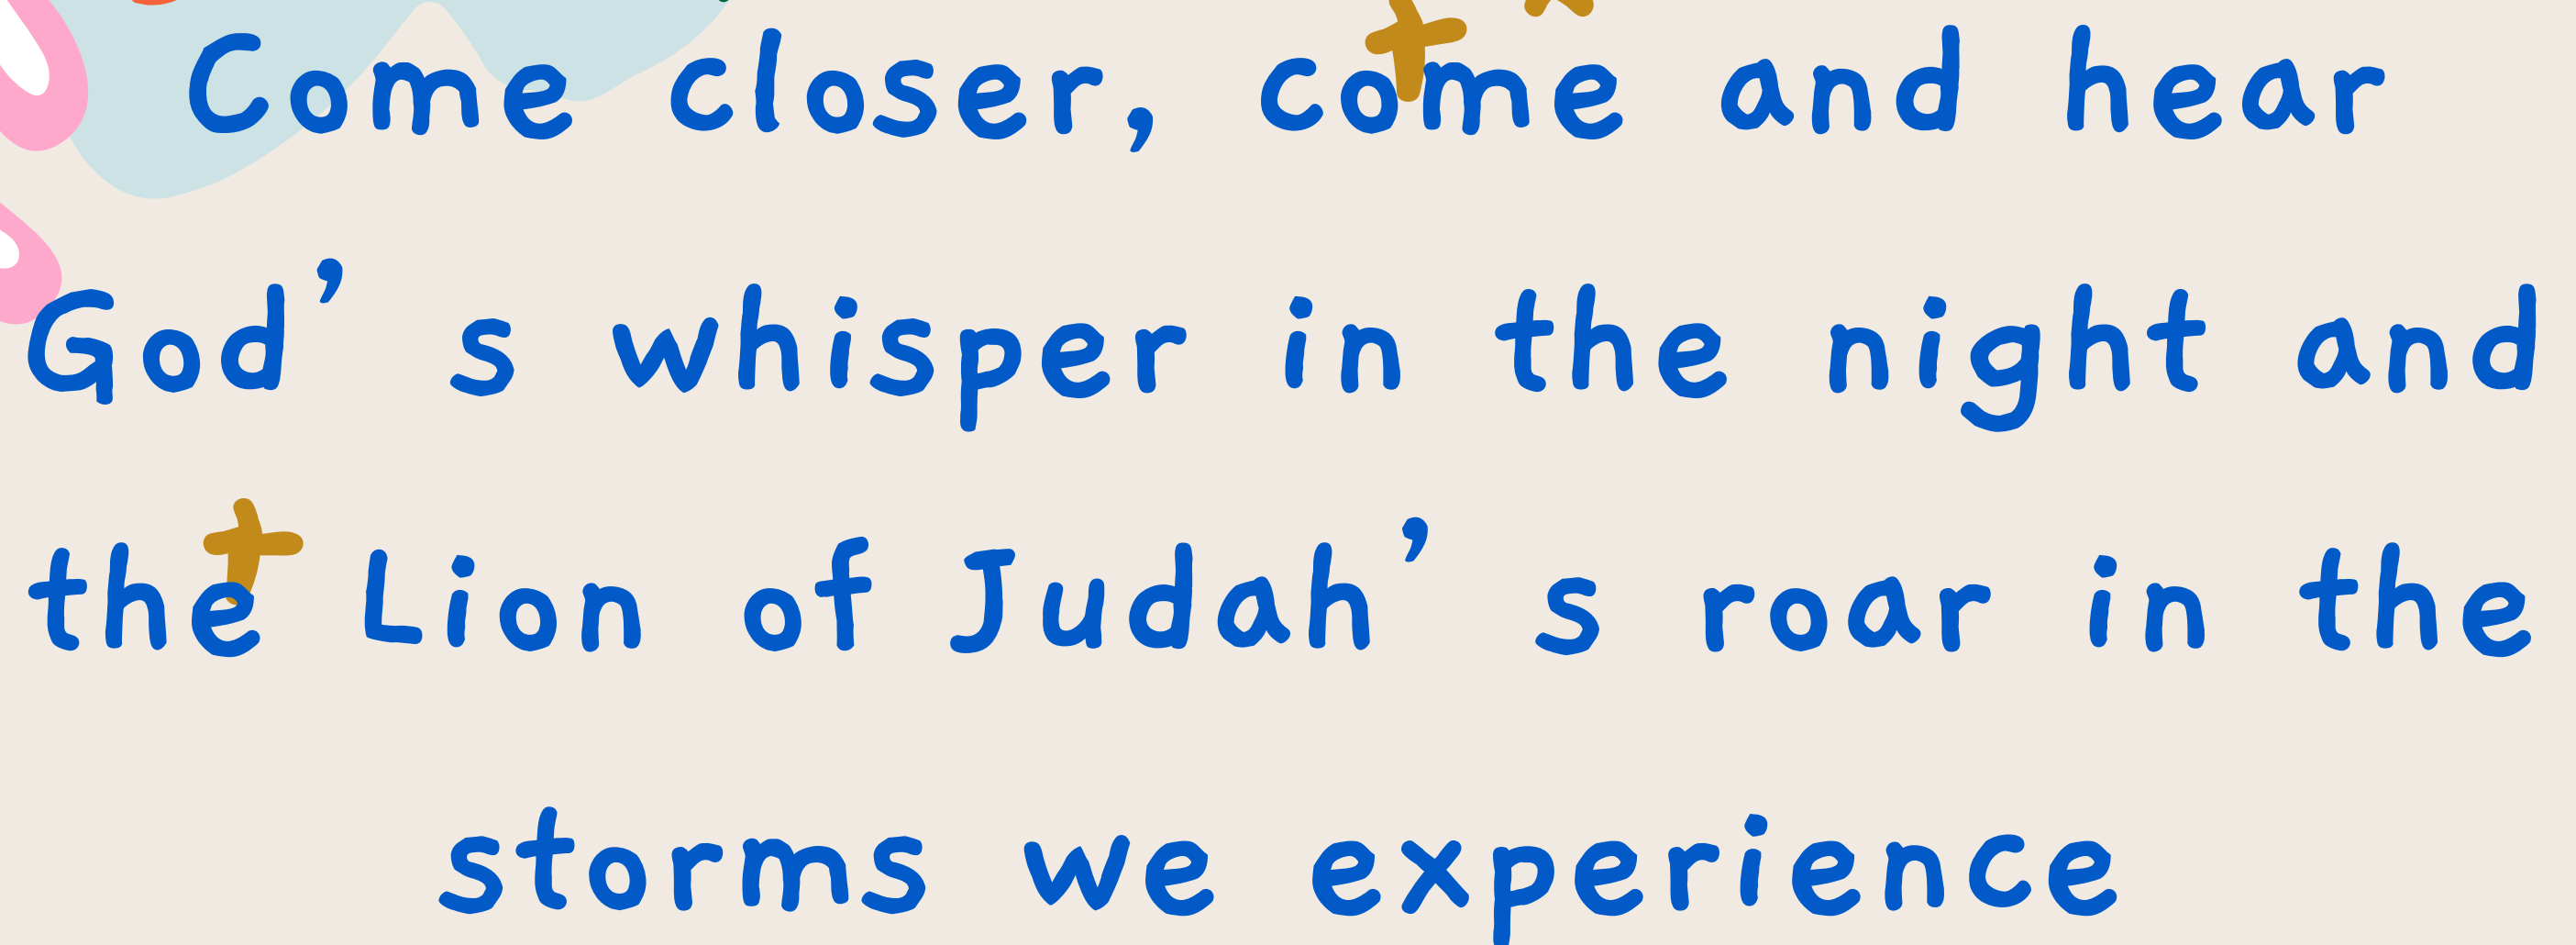 Come closer, come and hear
God's whisper in the night and
the Lion of Judah's roar in the
storms we experience